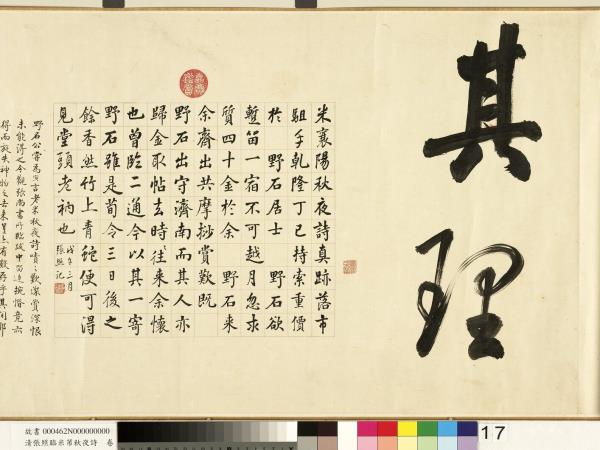 其理
米襄陽秋夜詩真跡落市
駔手乾隆丁巳持索重價
於 野石居士 野石欲
蹔留一宿不可越月忽求
質四十金於余 野石來
余齋出共摩挱賞歎既
野石出守濟南而其人亦
歸金取帖去時往來余懷
也曾臨二通今以其一寄
野石雖是荀令三日後之
餘香然竹上青蠅便可淂
見堂頭老衲也 戊午二月
張照記
野石公嘗為言老米秋夜詩嘖嘖歎賞深恨
未能得之今觀張尚書所臨跋中惋惜竟亦
得而旋失神物之去來
故書 000462N000000000
清張照臨米芾秋夜詩 卷
17